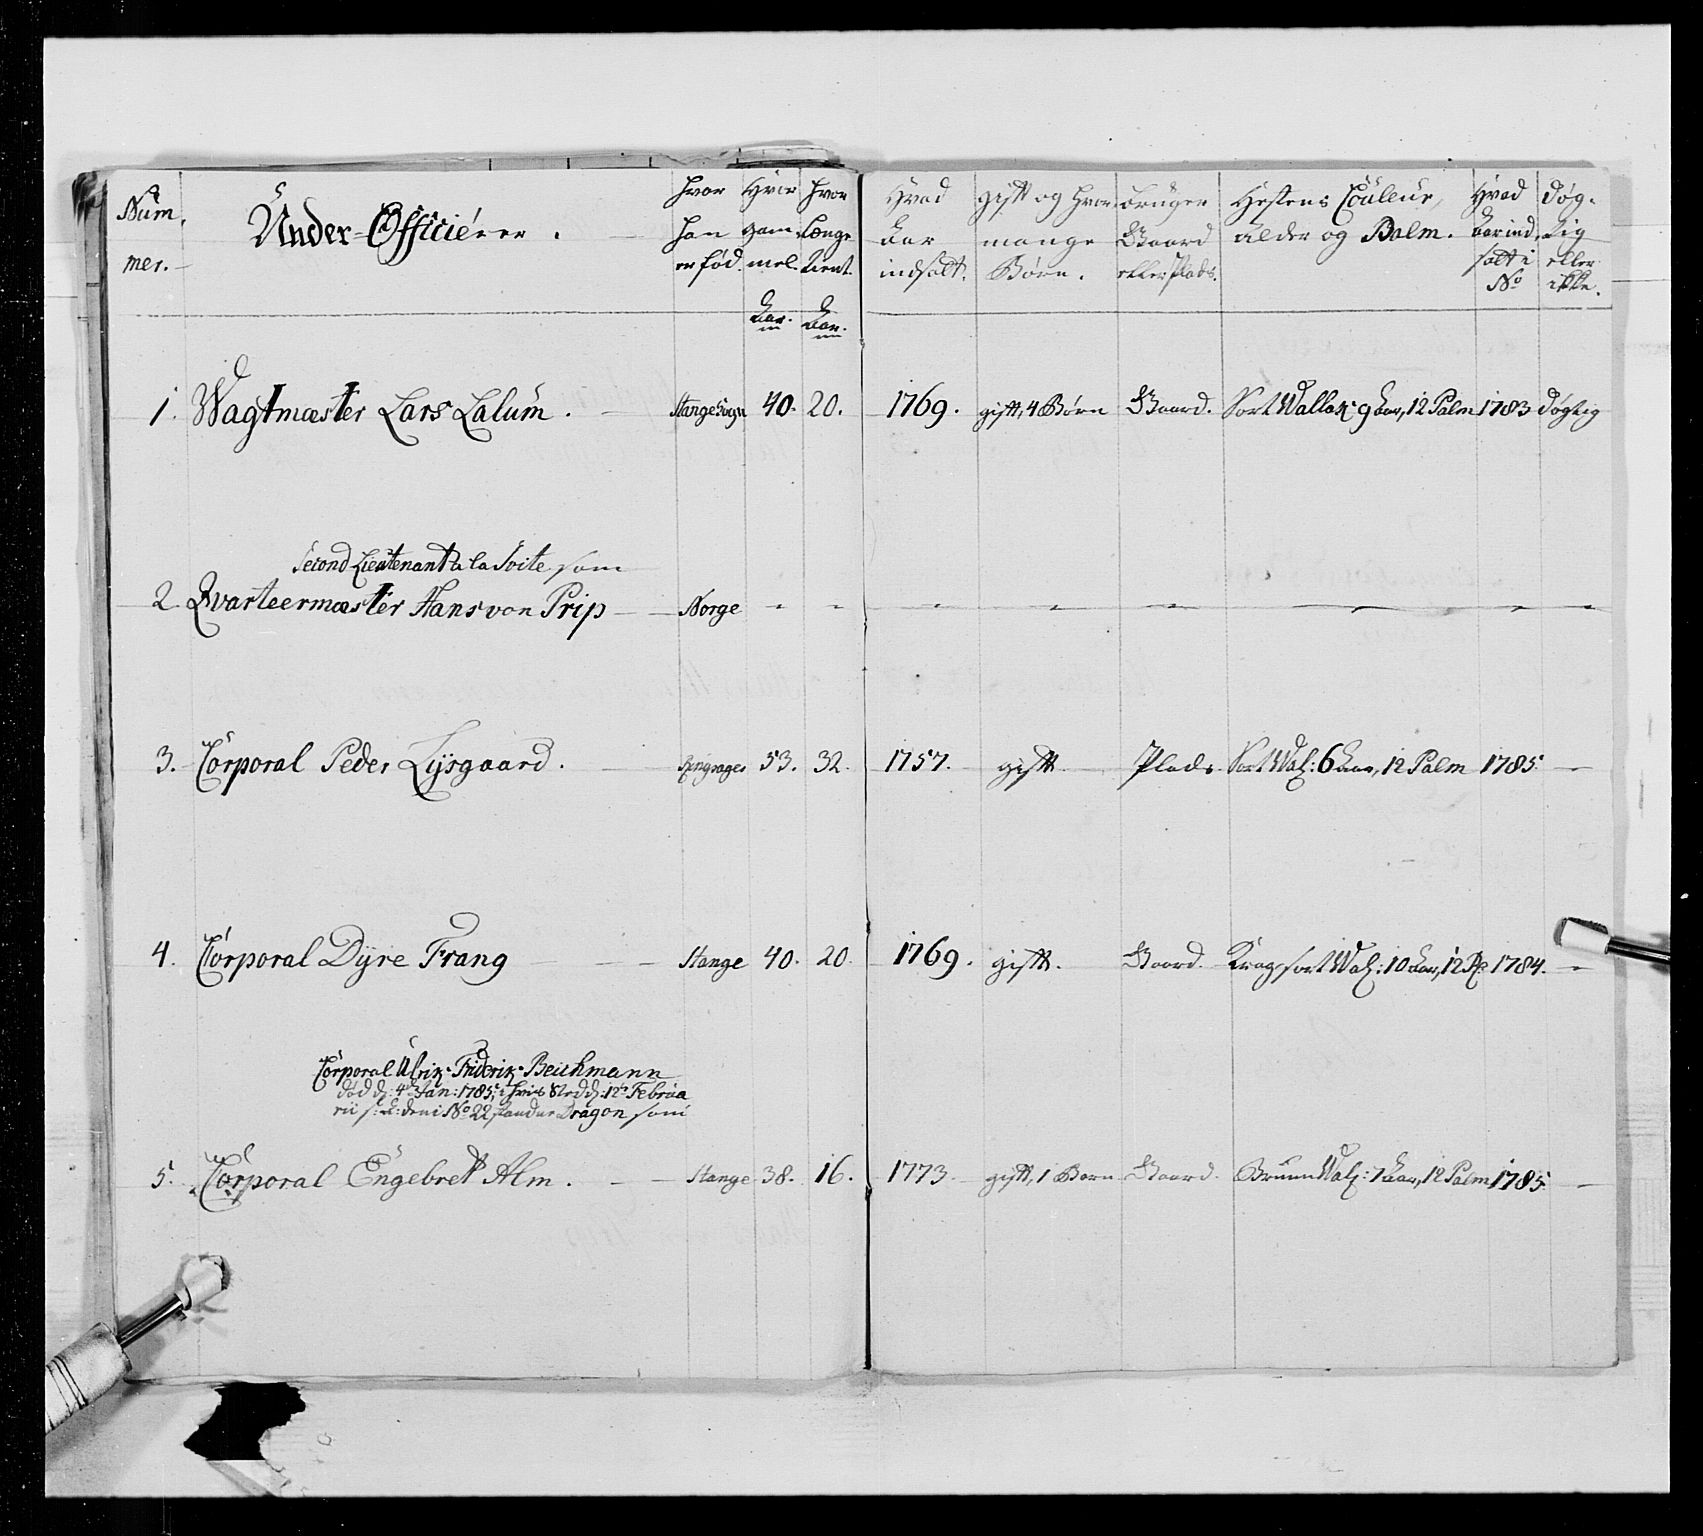 Num,
mer.
Under-Officierer.
hvor
han
er fød.
Hvor
gam-
mel.
Aar.
hvor
Længe
tient.
Aar.
Hvad
Aar
indsatt.
gift og hvor
mange
Børn.
bruger
Gaard
eller Plads.
Hæstens Couleur,
alder og Palm.
Hvad
Aar ind,
satt i
No
døg-
tig
eller
ikke.
1. Wagtmæster Lars Lalum. Stange Sogn 40. 20. 1769. gift, 4 Børn Gaard. Sort Wallak 9 Aar, 12 Palm 1783 døgtig
Second Lieutenant à la Svite som
2. Qvarteermæster Hans von Prip Norge " " " " " " " "
3. Corporal Peder Lysgaard. Ringsager 53. 32. 1757. gift Plads Sort Wal: 6 Aar, 12 Palm 1785. —
4. Corporal Dyre Frang Stange 40. 20. 1769. gift. Gaard. Kragsort Wal: 10 Aar, 12 P. 1784. —
Corporal Ulrik Friderik Beichmann
død d: 4de Jan: 1785, i hvis Sted d: 12te Februa
rii s: A: den i No 22 staaende Dragon som
5. Corporal Engebret Alm. Stange 38. 16. 1773. gift, 1 Barn Gaard. Bruun Wal: 7 Aar, 12 Palm 1785. —